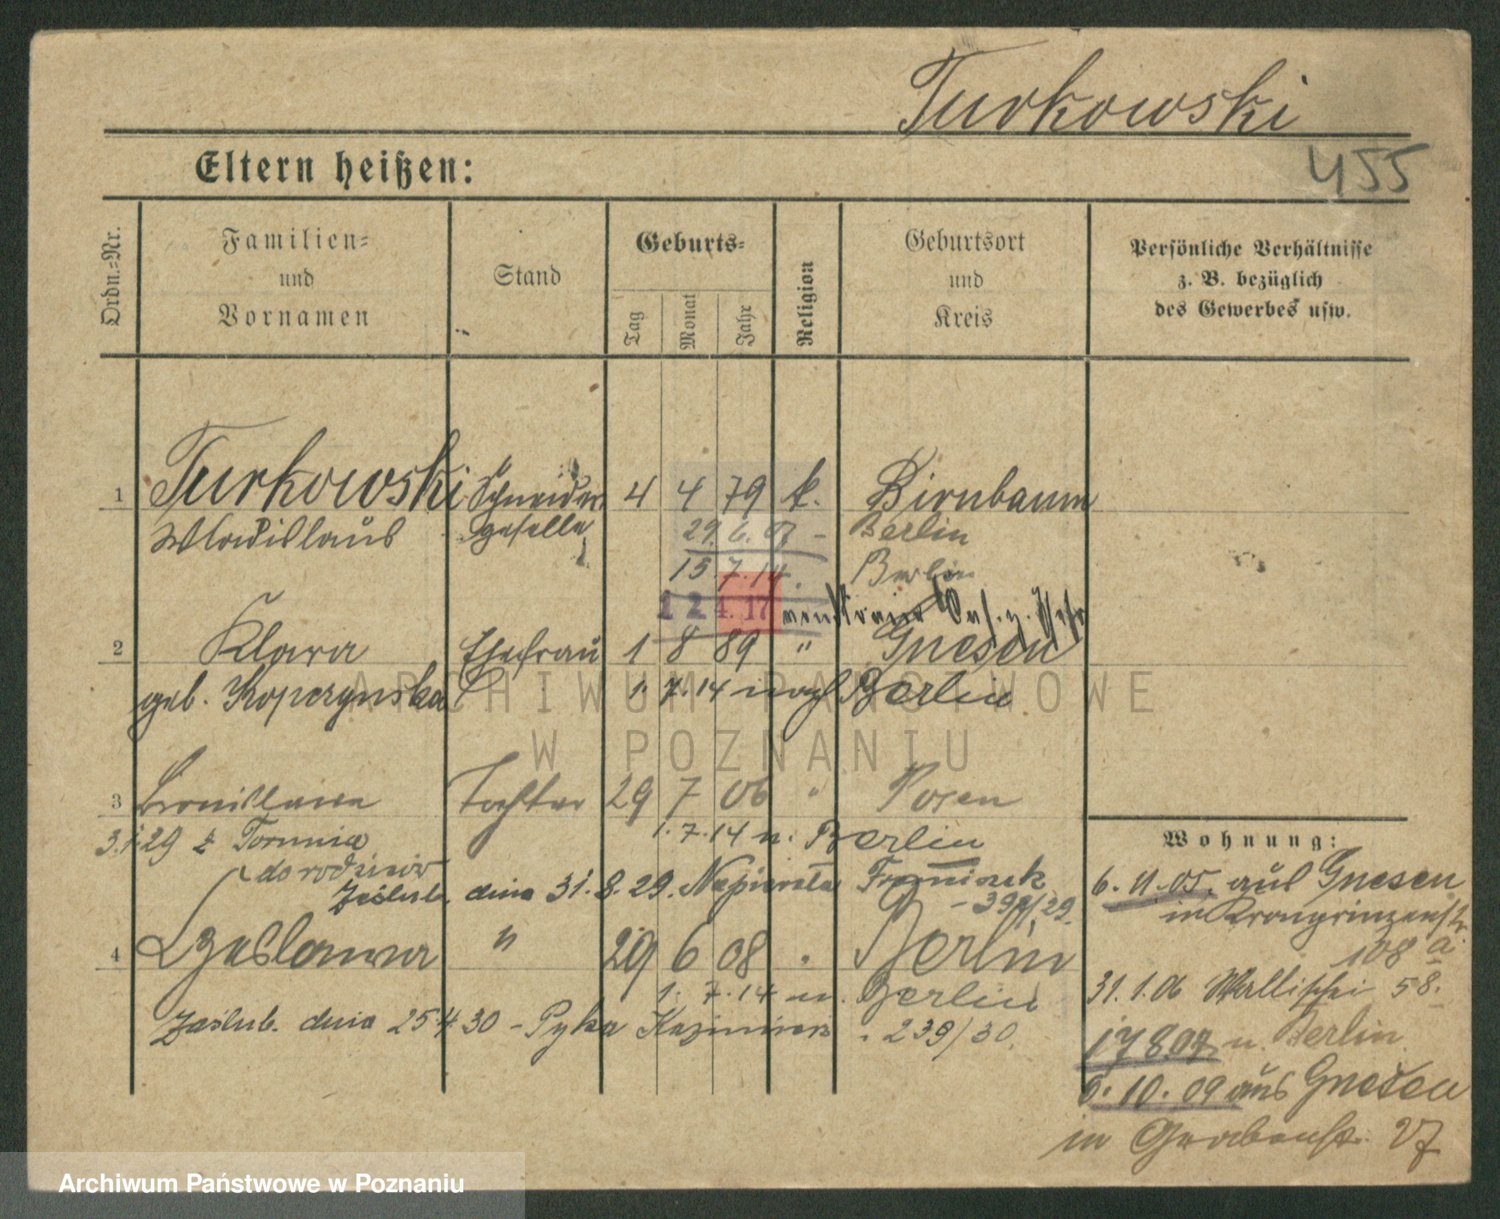 Turkowski
455
Eltern heißen:
Ordn.=Nr.
Familien=
und
Vornamen
Stand
Geburts=
Tag
Monat
Jahr
Religion
Geburtsort
und
Kreis
Persönliche Verhältnisse
z. B. bezüglich
des Gewerbes usw.
1 Turkowski Schneider 4 4 79 k. Birnbaum
Wladislaus geselle 29.6.07 - Berlin
15.7.14. Berlin
12 4.17
2 Klara Ehefrau 1 8 89 " Gnesen
geb. Kopczynska 1.7.14 nach Berlin
3 Bronislawa Tochter 29 7 06 " Posen
29 z Torunia 1.7.14 n. Berlin
do rodziców
Zaślub. dnia 31.8.29. Napierała Franciszek
4 Czeslawa " 29 6 08 " Berlin
1.7.14 n. Berlin
Zaślub. dnia 25.4.30 - Pyka Kazimierz . 239/30.
Wohnung:
6.11.05. aus Gnesen
in Kronprinzenstr.
108 a.
31.1.06 Wallischei 58.
17 8.07. n. Berlin
6.10.09 aus Gnesen
in Grabenstr. 27
ARCHIWUM PAŃSTWOWE
W POZNANIU
Archiwum Państwowe w Poznaniu